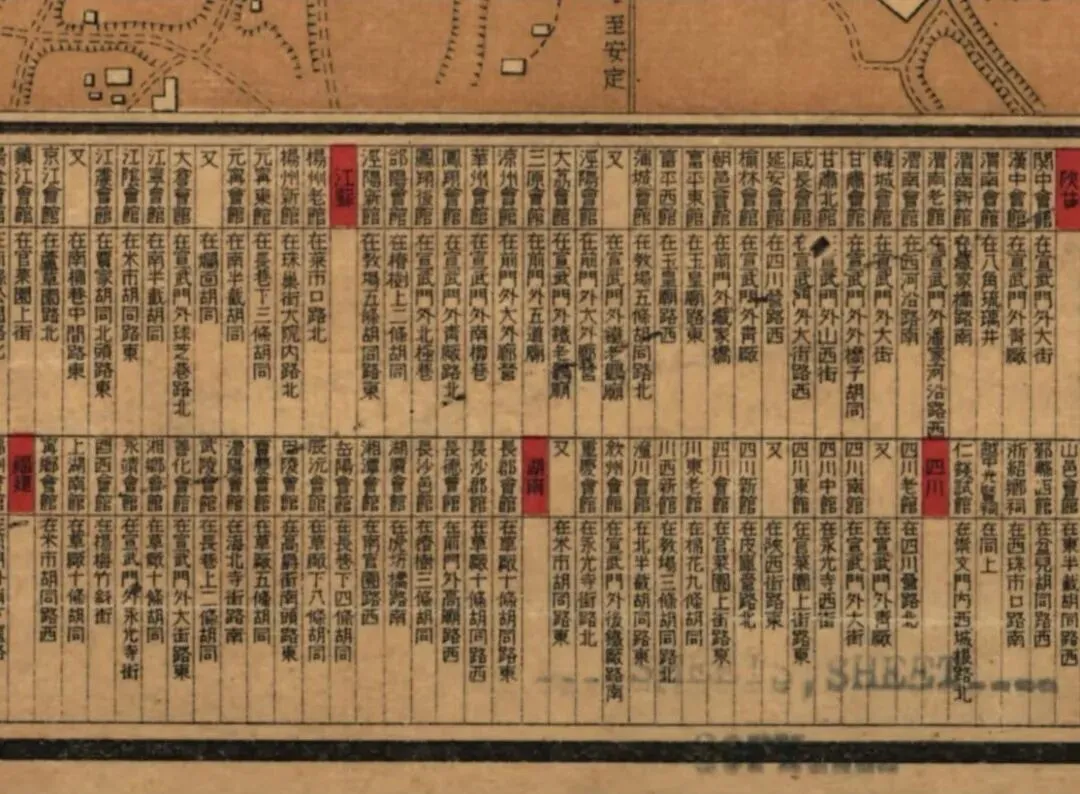 至安定
陜甘
關中會館 在宣武門外大街
漢中會館 在宣武門外青廠
渭南會館 在八角琉璃井
渭南新館 在臧家橋路南
渭南老館 在宣武門外潘家河沿路西
渭南會館 在西河沿路南
韓城會館 在宣武門外大街
甘肅會館 在宣武門外橋子胡同
甘肅北館 武門外山西街
咸長會館 在宣武門外大街路西
延安會館 在四川營路西
榆林會館 在宣武門外青廠
朝邑會館 在前門外臧家橋
富平東館 在玉皇廟路東
富平西館 在玉皇廟路西
蒲城會館 在教場五條胡同路北
又 在宣武門外鐵老鸛廟
涇陽會館 在前門外大外郎營
大荔會館 在宣武門外鐵老鸛廟
三原會館 在前門外五道廟
涼州會館 在前門外大外郎營
華州會館 在宣武門外南柳巷
鳳翔會館 在宣武門外青廠路北
鳳翔後館 在宣武門外北極巷
郃陽會館 在椿樹上二條胡同
涇陽新館 在教場五條胡同路東
江蘇
揚州老館 在菜市口路北
揚州新館 在珠巢街大院內路北
元甯東館 在長巷下三條胡同
元甯會館 在南半截胡同
又 在爛面胡同
太倉會館 在宣武門外珠之巷路北
江寧會館 在南半截胡同
江陰會館 在米市胡同路東
江震會館 在賈家胡同北頭路東
又 在南橫巷中間路東
京江會館 在薑草園路北
鎮江會館 在官菜園上街
山邑會館 在東半截胡同路西
鄞縣西館 在盆兒胡同路西
浙紹鄉祠 在西珠市口路南
在同上
仁錢試館 在崇文門內西城根路北
四川
四川老館 在四川營路北
又 在宣武門外青廠
四川南館 在宣武門外大街
四川中館 在永光寺西街
四川東館 在官菜園上街路東
又 在陝西街路東
四川新館 在皮庫營路北
四川會館 在官菜園上街路東
川東老館 在棉花九條胡同
川西新館 在教場三條胡同路北
潼川會館 在北半截胡同路東
敘州會館 在宣武門外後鐵廠路南
重慶會館 在永光寺街路北
又 在米市胡同路東
湖南
長郡會館 在草廠十條胡同路東
長沙郡館 在草廠十條胡同路西
常德會館 在前門外高廟路西
長沙邑館 在椿樹三條胡同
湖廣會館 在虎坊橋路南
湘潭會館 在南官園路西
岳陽會館 在長巷下四條胡同
辰沅會館 在草廠下八條胡同
巴陵會館 在高爵街南頭路東
寶慶會館 在草廠五條胡同
澧州會館 在海北寺街路南
武陵會館 在長巷上二條胡同
善化會館 在宣武門外大街路東
湘鄉會館 在草廠十條胡同
永靖會館 在宣武門外永光寺街
酉西會館 在楊梅竹斜街
上湖南館 在草廠十條胡同
甯鄉會館 在米市胡同路西
福建
SHEETS, SHEET